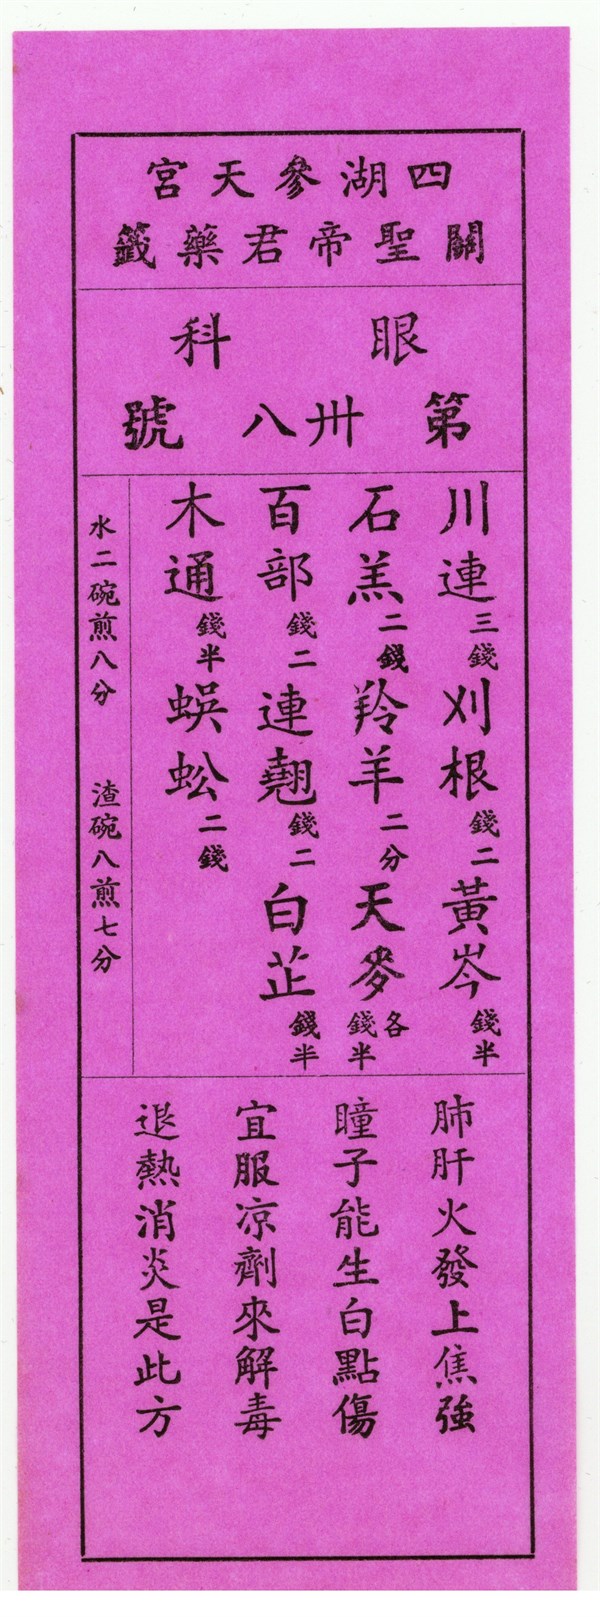 四湖參天宮
關聖帝君藥籤
眼科
第卅八號
川連三錢 刈根錢二 黃岑錢半
石羔二錢 羚羊二分 天麥各錢半
百部錢二 連翹錢二 白芷錢半
木通錢半 蜈蚣二錢
水二碗煎八分 渣碗八煎七分
肺肝火發上焦強
瞳子能生白點傷
宜服凉劑來解毒
退熱消炎是此方